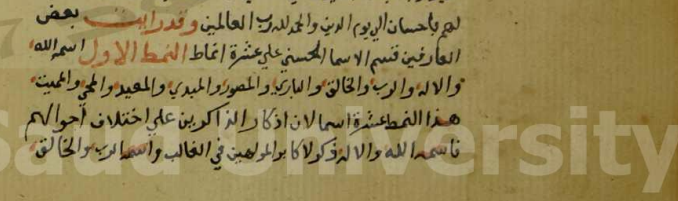 لهم باحسان الي يوم الدين والحمد لله رب العالمين وقد رايت بعض
العارفين قسم الاسما الحسني علي عشرة انماط النمط الاول اسمه الله
والاله والرب والخالق والباري والمصور والمبدي والمعيد والمحي والمميت
هذا النمط عشرة اسما لان اذكار الذاكرين علي اختلاف احوالهم
فاسمه الله والاله ذكر لاكابر المولهين في الغالب واسمه الرب والخالق
Saud University